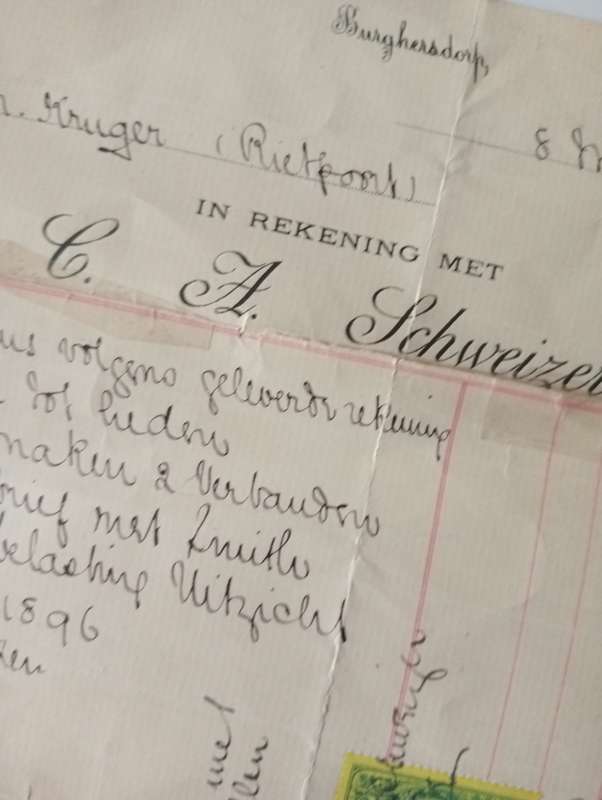 Burghersdorp,
Kruger (Rietpoort)
8
IN REKENING MET
C. A. Schweizer
volgens geleverde rekening
tot heden
maken 2 Verbanden
brief met Smith
belasting Uitzicht
1896